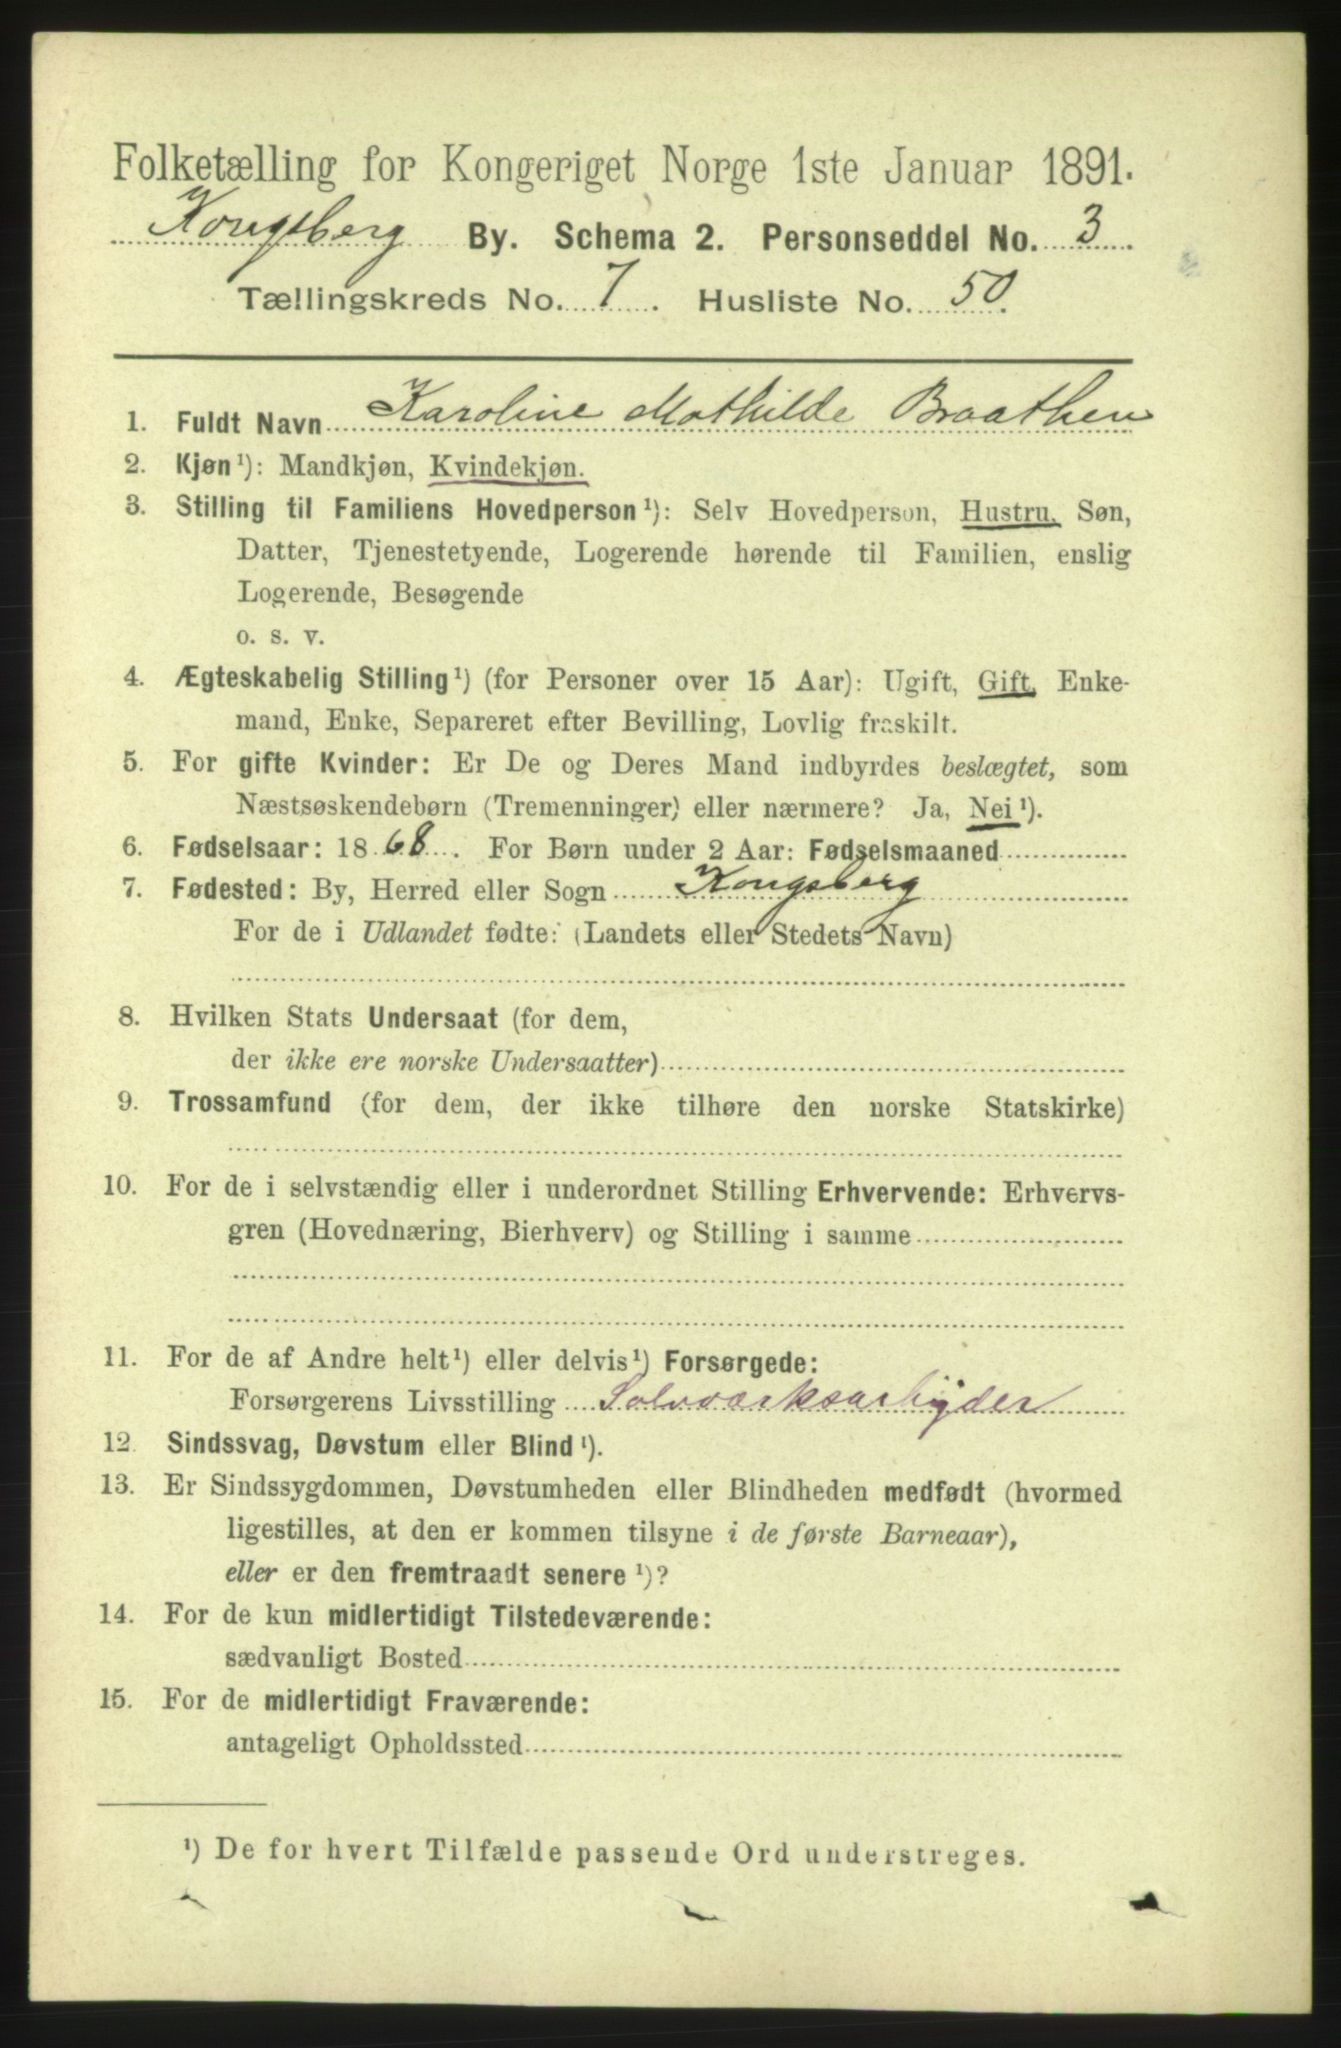 Folketælling for Kongeriget Norge 1ste Januar 1891.
Kongsberg By. Schema 2. Personseddel No. 3.
Tællingskreds No. 7. Husliste No. 50.
1. Fuldt Navn Karoline Mathilde Braathen
2. Kjøn¹): Mandkjøn, Kvindekjøn.
3. Stilling til Familiens Hovedperson¹): Selv Hovedperson, Hustru, Søn,
Datter, Tjenestetyende, Logerende hørende til Familien, enslig
Logerende, Besøgende
o. s. v.
4. Ægteskabelig Stilling¹) (for Personer over 15 Aar): Ugift, Gift, Enke-
mand, Enke, Separeret efter Bevilling, Lovlig fraskilt.
5. For gifte Kvinder: Er De og Deres Mand indbyrdes beslægtet, som
Næstsøskendebørn (Tremenninger) eller nærmere? Ja, Nei¹).
6. Fødselsaar: 1868. For Børn under 2 Aar: Fødselsmaaned
7. Fødested: By, Herred eller Sogn Kongsberg
For de i Udlandet fødte: (Landets eller Stedets Navn)
8. Hvilken Stats Undersaat (for dem,
der ikke ere norske Undersaatter)
9. Trossamfund (for dem, der ikke tilhøre den norske Statskirke)
10. For de i selvstændig eller i underordnet Stilling Erhvervende: Erhvervs-
gren (Hovednæring, Bierhverv) og Stilling i samme
11. For de af Andre helt¹) eller delvis¹) Forsørgede:
Forsørgerens Livsstilling Solvværksarbyder
12. Sindssvag, Døvstum eller Blind¹).
13. Er Sindssygdommen, Døvstumheden eller Blindheden medfødt (hvormed
ligestilles, at den er kommen tilsyne i de første Barneaar),
eller er den fremtraadt senere¹)?
14. For de kun midlertidigt Tilstedeværende:
sædvanligt Bosted
15. For de midlertidigt Fraværende:
antageligt Opholdssted
¹) De for hvert Tilfælde passende Ord understreges.